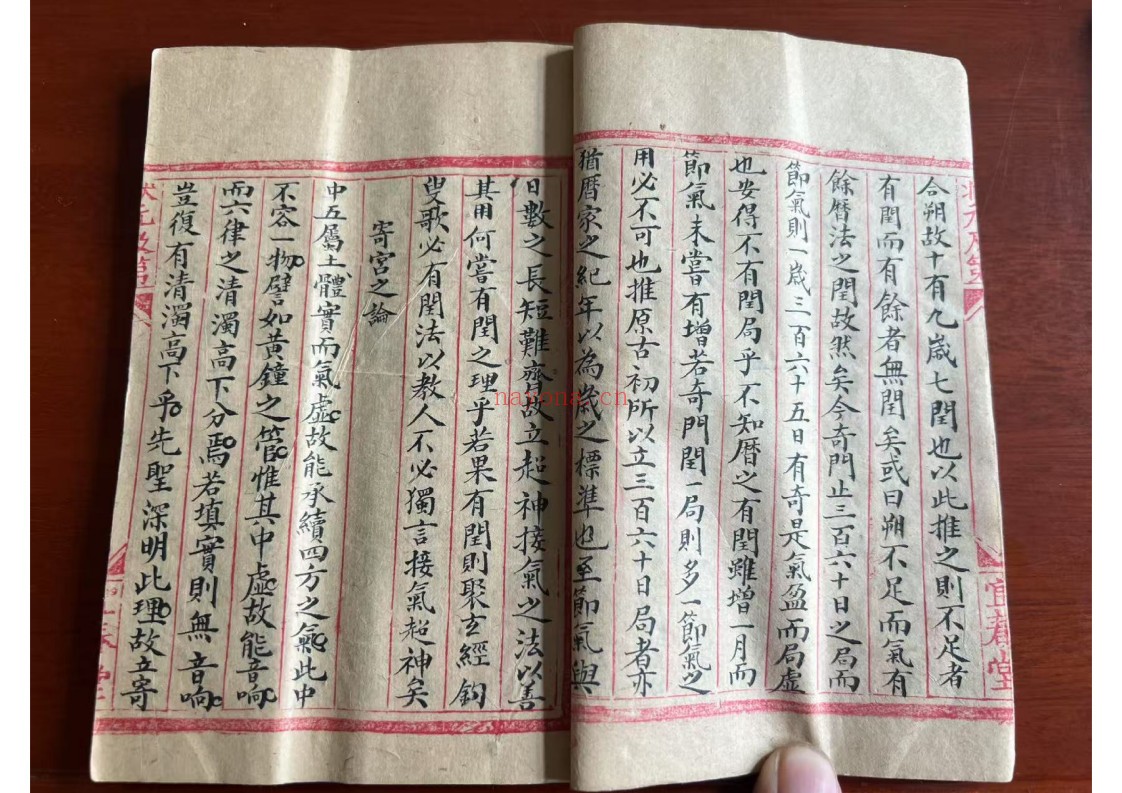 合朔故十有九歲七閏也以此推之則不足者
有閏而有餘者無閏矣或曰朔不足而氣有
餘曆法之閏故然矣今奇門止三百六十日之局而
節氣則一歲三百六十五日有奇是氣盈而局虛
也安得不有閏局乎不知曆之有閏雖增一月而
節氣未嘗有增若奇門閏一局則多一節氣之
用必不可也推原古初所以立三百六十日局者亦
猶曆家之紀年以為歲之標準也至節氣與
日數之長短難齊故立超神接氣之法以善
其用何嘗有閏之理乎若果有閏則聚玄經鈎
叟歌必有閏法以教人不必獨言接氣超神矣
寄宮之論
中五屬土體實而氣虛故能承續四方之氣此中
不容一物譬如黃鐘之管惟其中虛故能音响
而六律之清濁高下分焉若填實則無音响
豈復有清濁高下乎先聖深明此理故立寄
狀元及第
宜春堂
狀元及第
nayona.cn